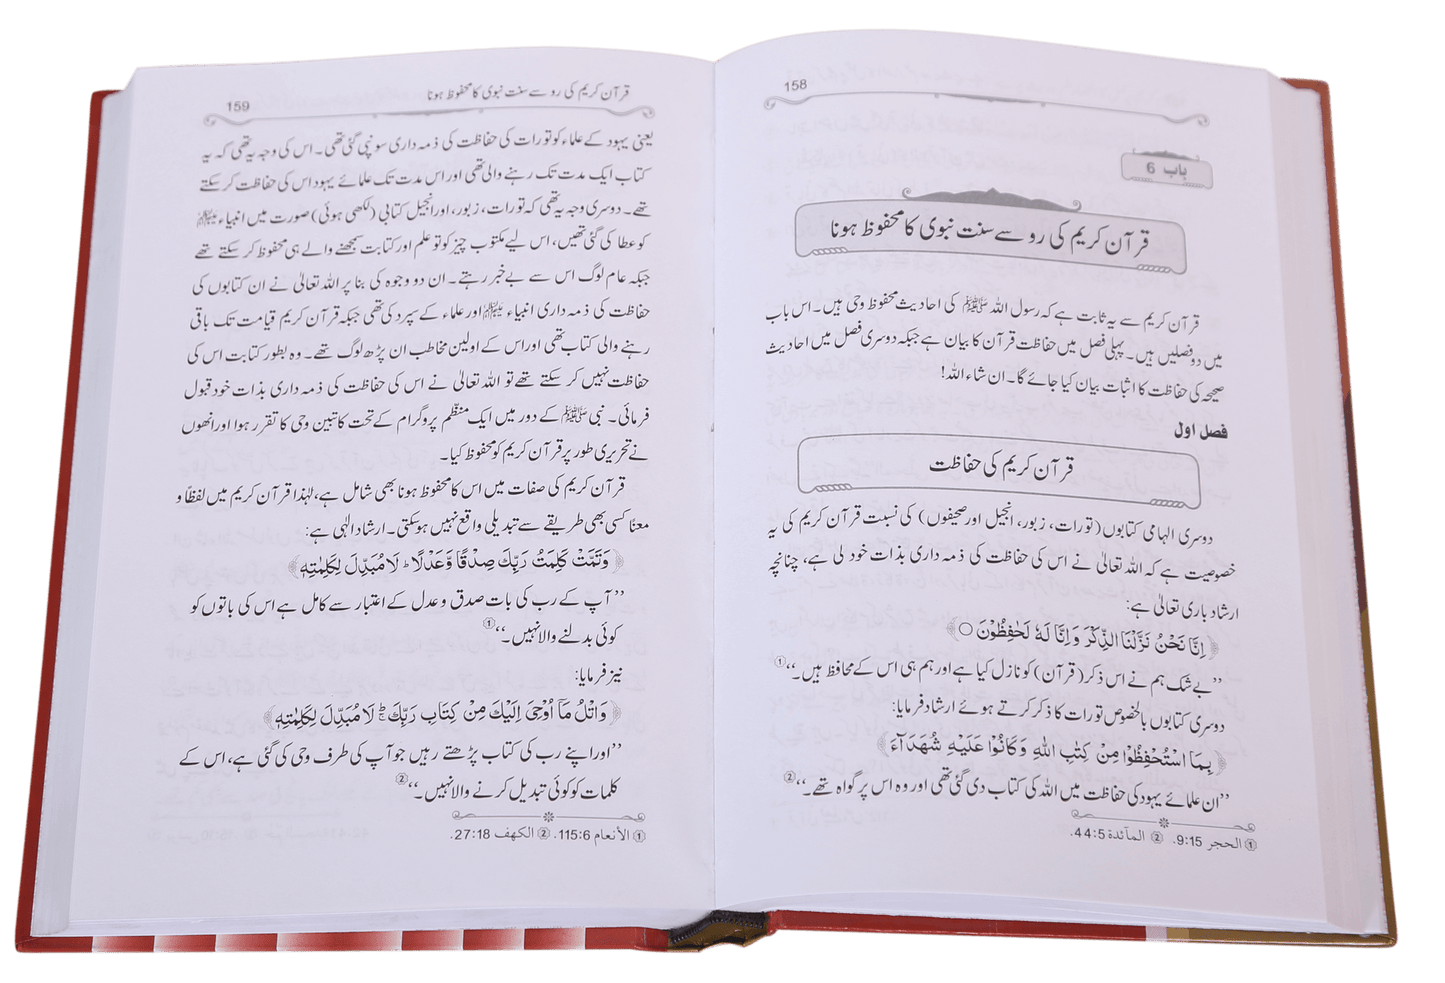 158
باب 6
قرآن کریم کی رو سے سنت نبوی کا محفوظ ہونا
قرآن کریم سے یہ ثابت ہے کہ رسول اللہ ﷺ کی احادیث محفوظ وحی ہیں۔ اس باب
میں دو فصلیں ہیں۔ پہلی فصل میں حفاظت قرآن کا بیان ہے جبکہ دوسری فصل میں احادیث
صحیحہ کی حفاظت کا اثبات بیان کیا جائے گا۔ ان شاء اللہ!
فصل اول
قرآن کریم کی حفاظت
دوسری الہامی کتابوں (تورات، زبور، انجیل اور صحیفوں) کی نسبت قرآن کریم کی یہ
خصوصیت ہے کہ اللہ تعالیٰ نے اس کی حفاظت کی ذمہ داری بذات خود لی ہے، چنانچہ
ارشاد باری تعالیٰ ہے:
﴿اِنَّا نَحْنُ نَزَّلْنَا الذِّكْرَ وَاِنَّا لَهٗ لَحٰفِظُوْنَ ○﴾
’’بے شک ہم نے اس ذکر (قرآن) کو نازل کیا ہے اور ہم ہی اس کے محافظ ہیں۔‘‘①
دوسری کتابوں بالخصوص تورات کا ذکر کرتے ہوئے ارشاد فرمایا:
﴿بِمَا اسْتُحْفِظُوْا مِنْ كِتٰبِ اللّٰهِ وَكَانُوْا عَلَيْهِ شُهَدَآءَ﴾
’’ان علمائے یہود کی حفاظت میں اللہ کی کتاب دی گئی تھی اور وہ اس پر گواہ تھے۔‘‘②
① الحجر 9:15. ② المآئدة 44:5.
159
قرآن کریم کی رو سے سنت نبوی کا محفوظ ہونا
یعنی یہود کے علماء کو تورات کی حفاظت کی ذمہ داری سونپی گئی تھی۔ اس کی وجہ یہ تھی کہ یہ
کتاب ایک مدت تک رہنے والی تھی اور اس مدت تک علمائے یہود اس کی حفاظت کر سکتے
تھے۔ دوسری وجہ یہ تھی کہ تورات، زبور، اور انجیل کتابی (لکھی ہوئی) صورت میں انبیاء علیہم السلام
کو عطا کی گئی تھیں، اس لیے مکتوب چیز کو تو علم اور کتابت سمجھنے والے ہی محفوظ کر سکتے تھے
جبکہ عام لوگ اس سے بے خبر رہتے۔ ان دو وجوہ کی بنا پر اللہ تعالیٰ نے ان کتابوں کی
حفاظت کی ذمہ داری انبیاء علیہم السلام اور علماء کے سپرد کی تھی جبکہ قرآن کریم قیامت تک باقی
رہنے والی کتاب تھی اور اس کے اولین مخاطب ان پڑھ لوگ تھے۔ وہ بطور کتابت اس کی
حفاظت نہیں کر سکتے تھے تو اللہ تعالیٰ نے اس کی حفاظت کی ذمہ داری بذات خود قبول
فرمائی۔ نبی ﷺ کے دور میں ایک منظّم پروگرام کے تحت کاتبین وحی کا تقرر ہوا اور انھوں
نے تحریری طور پر قرآن کریم کو محفوظ کیا۔
قرآن کریم کی صفات میں اس کا محفوظ ہونا بھی شامل ہے، لہٰذا قرآن کریم میں لفظًا و
معنًا کسی بھی طریقے سے تبدیلی واقع نہیں ہو سکتی۔ ارشاد الٰہی ہے:
﴿وَتَمَّتْ كَلِمَتُ رَبِّكَ صِدْقًا وَّعَدْلًا ۭ لَا مُبَدِّلَ لِكَلِمٰتِهٖ﴾
’’آپ کے رب کی بات صدق و عدل کے اعتبار سے کامل ہے اس کی باتوں کو
کوئی بدلنے والا نہیں۔‘‘①
نیز فرمایا:
﴿وَاتْلُ مَآ اُوْحِيَ اِلَيْكَ مِنْ كِتَابِ رَبِّكَ ۚ لَا مُبَدِّلَ لِكَلِمٰتِهٖ﴾
’’اور اپنے رب کی کتاب پڑھتے رہیں جو آپ کی طرف وحی کی گئی ہے، اس کے
کلمات کو کوئی تبدیل کرنے والا نہیں۔‘‘②
① الأنعام 115:6. ② الكهف 27:18.